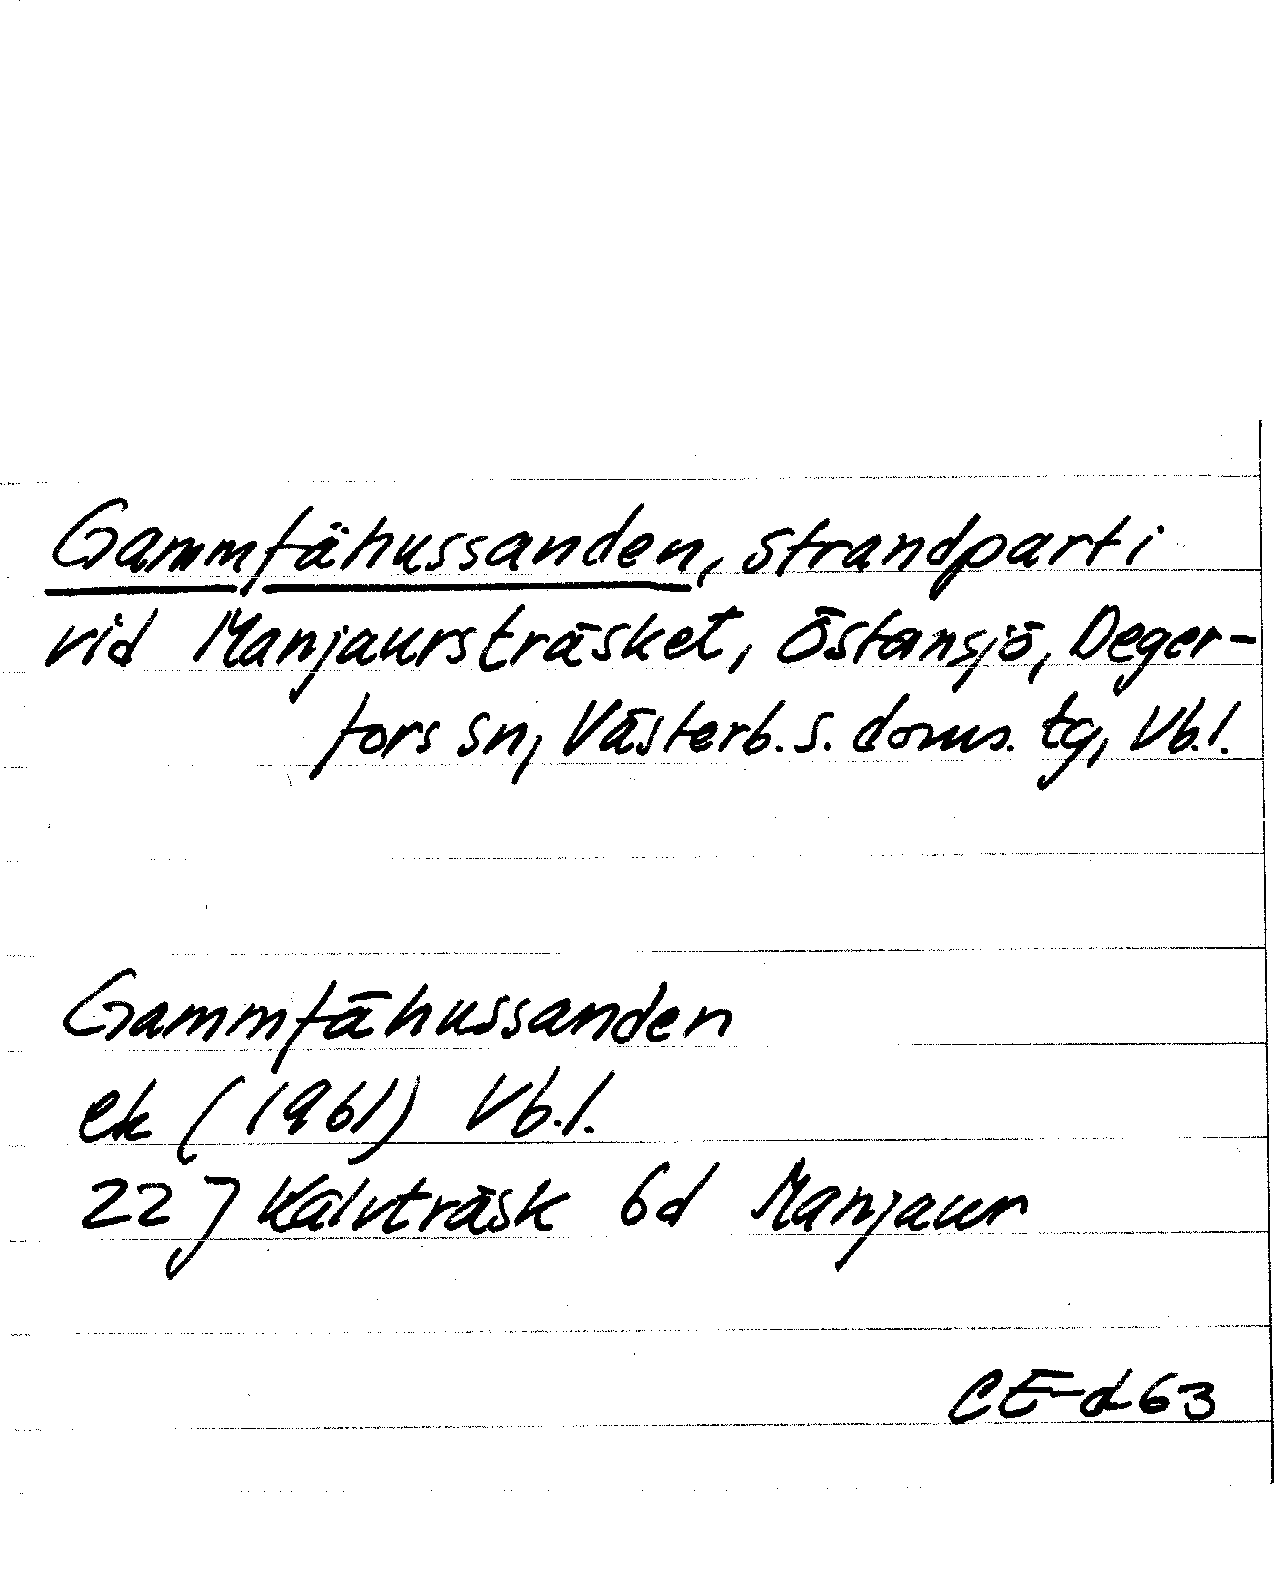 Gammfähussanden, strandparti
vid Manjaursträsket, Östansjö, Deger-
fors sn, Västerb. s. doms. tg, Vb.l.
Gammfähussanden
ek (1961) Vb.l.
22 J Kalvträsk 6d Manjaur
CE-d63